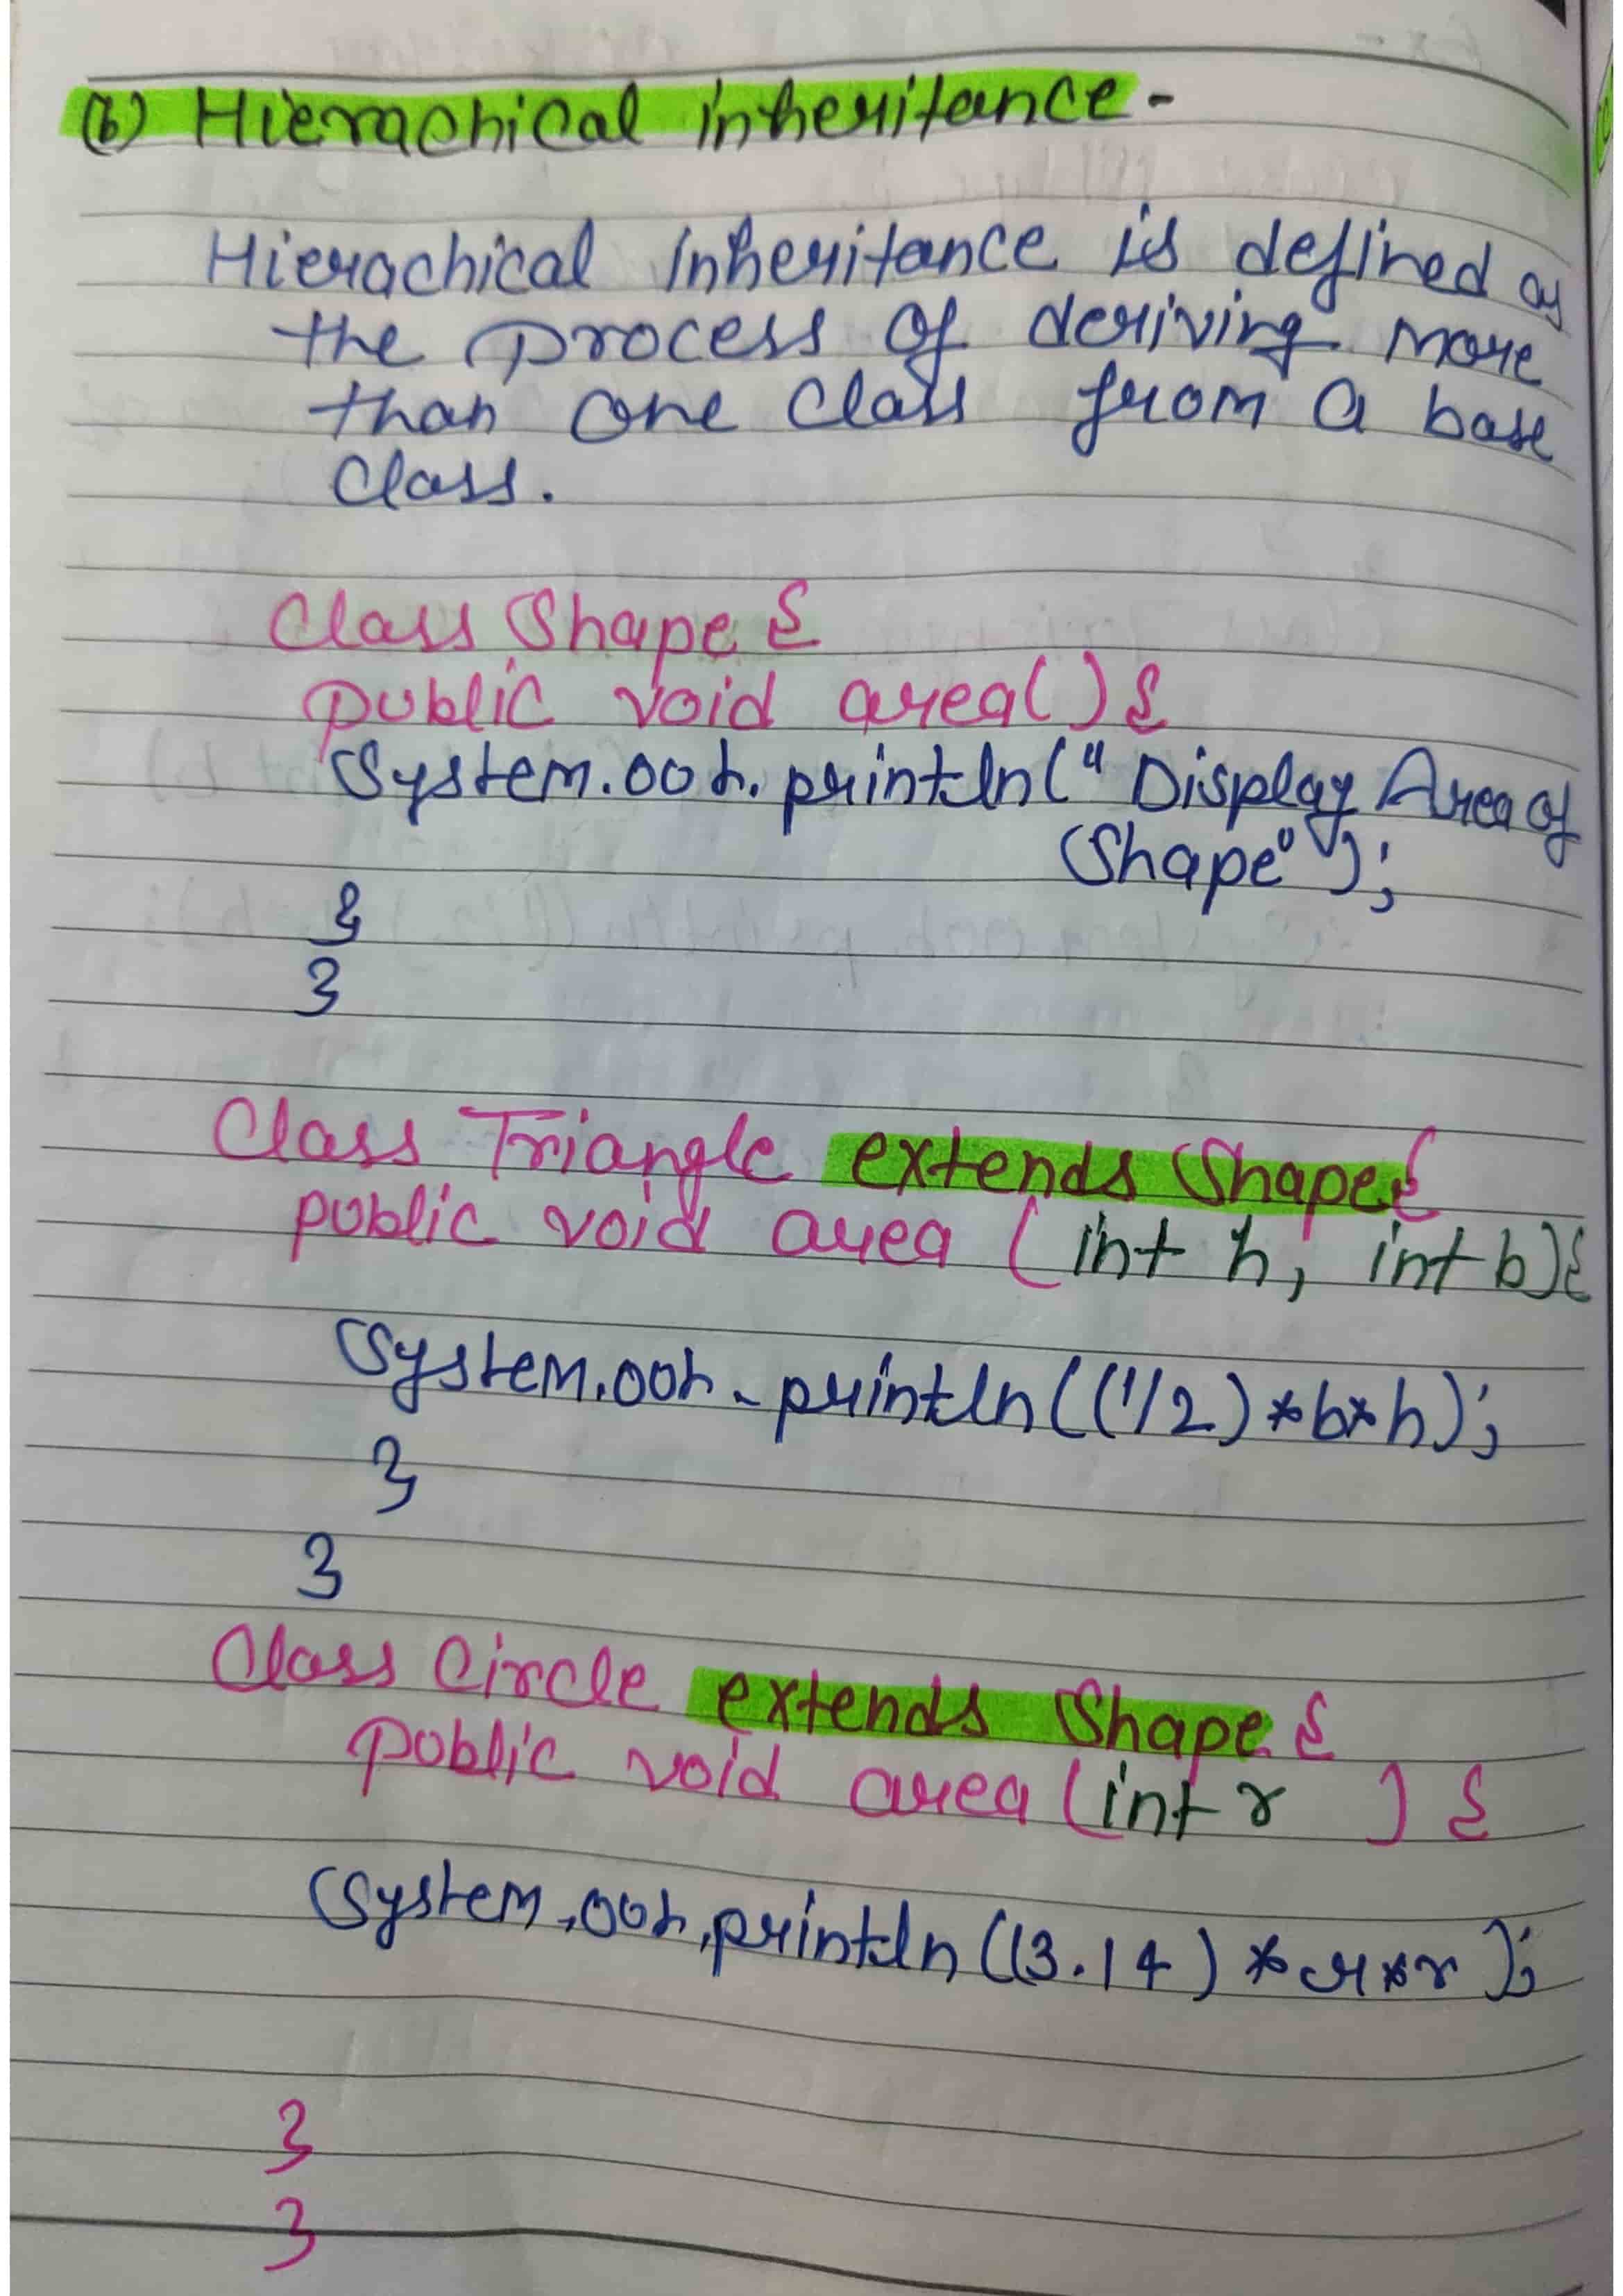 (b) Hierachical inheritance -
Hierachical inheritance is defined as
the process of deriving more
than one class from a base
class.
Class Shape {
public void area( ) {
System.out.println(" Display Area of
Shape" );
}
}
Class Triangle extends Shape {
public void area ( int h, int b) {
System.out.println((1/2)*b*h);
}
}
Class Circle extends Shape {
public void area (int r ) {
System.out.println((3.14) * r*r );
}
}